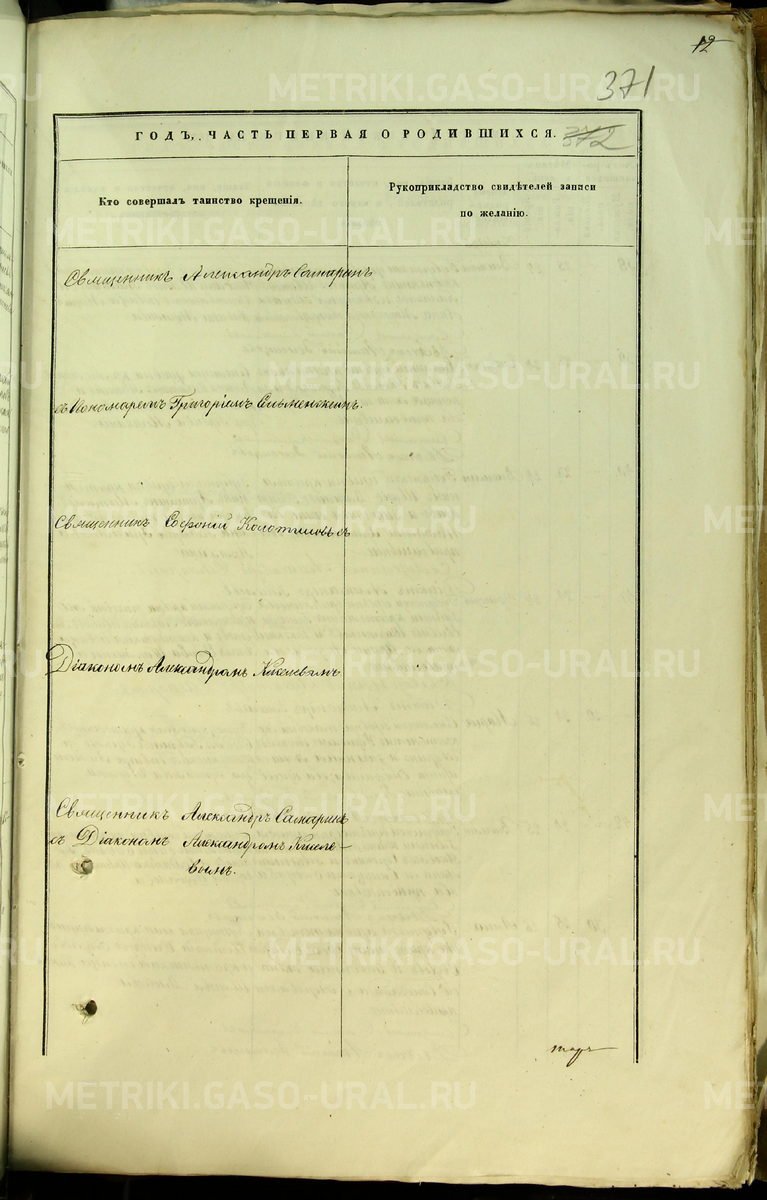 12
371
ГОДЪ, ЧАСТЬ ПЕРВАЯ О РОДИВШИХСЯ. 372
Кто совершалъ таинство крещенія.
Рукоприкладство свидѣтелей записи
по желанію.
Священникъ Александръ Самаринъ
съ Пономаремъ Григоріемъ
Священникъ Софоній съ
Діакономъ Александромъ Киселевымъ
Священникъ Александръ Самаринъ
съ Діакономъ Александромъ Киселе-
вымъ.
METRIKI.GASO-URAL.RU